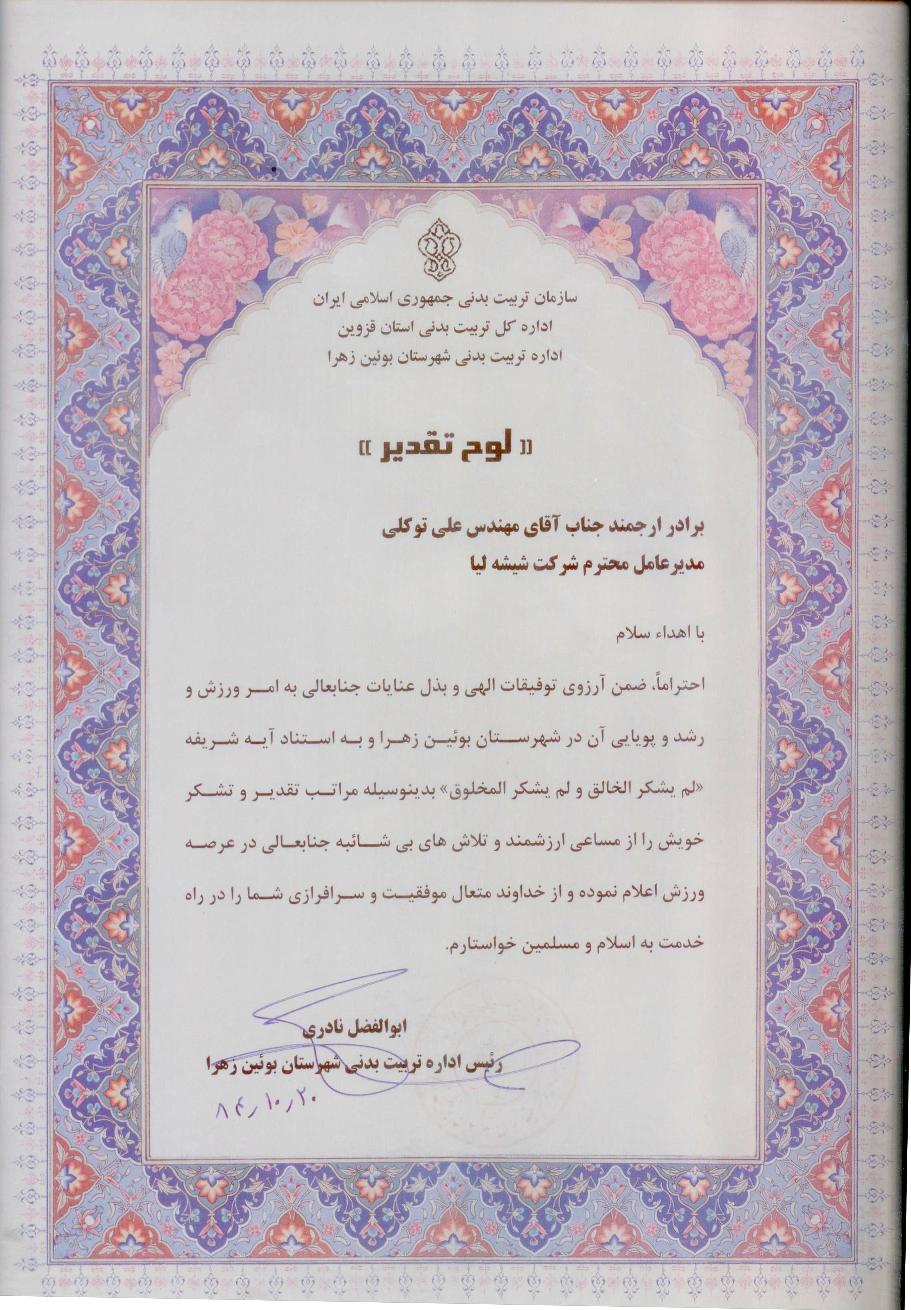 سازمان تربیت بدنی جمهوری اسلامی ایران
اداره کل تربیت بدنی استان قزوین
اداره تربیت بدنی شهرستان بوئین زهرا
(( لوح تقدیر ))
برادر ارجمند جناب آقای مهندس علی توکلی
مدیرعامل محترم شرکت شیشه لیا
با اهداء سلام
احتراماً، ضمن آرزوی توفیقات الهی و بذل عنایات جنابعالی به امر ورزش و
رشد و پویایی آن در شهرستان بوئین زهرا و به استناد آیه شریفه
«لم یشکر الخالق و لم یشکر المخلوق» بدینوسیله مراتب تقدیر و تشکر
خویش را از مساعی ارزشمند و تلاش های بی شائبه جنابعالی در عرصه
ورزش اعلام نموده و از خداوند متعال موفقیت و سرافرازی شما را در راه
خدمت به اسلام و مسلمین خواستارم.
ابوالفضل نادری
رئیس اداره تربیت بدنی شهرستان بوئین زهرا
۸۴/۱۰/۲۰